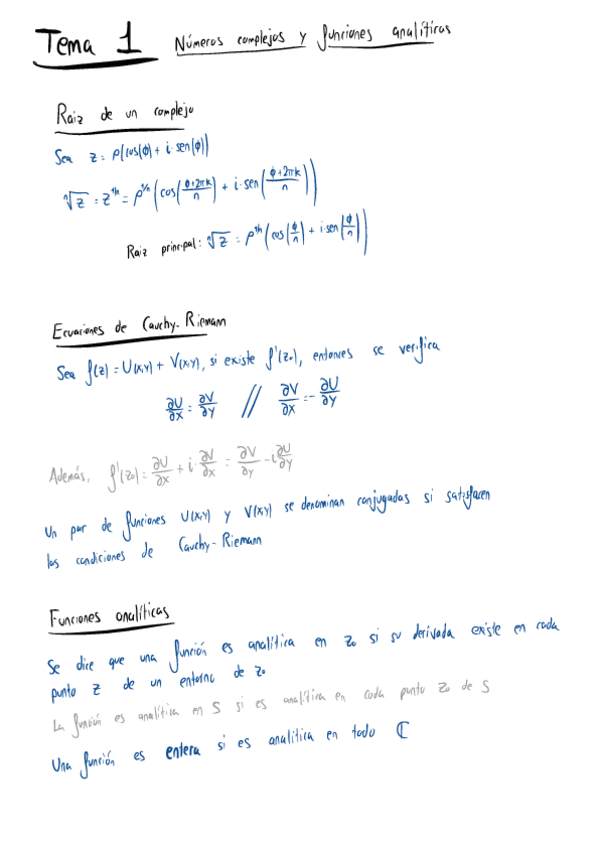 Tema 1 Números complejos y funciones analíticas
Raiz de un complejo
Sea z = ρ(cos(ϕ) + i·sen(ϕ))
ⁿ√z = z^(1/n) = ρ^(1/n) (cos((ϕ+2πk)/n) + i·sen((ϕ+2πk)/n))
Raiz principal: ⁿ√z = ρ^(1/n) (cos(ϕ/n) + i·sen(ϕ/n))
Ecuaciones de Cauchy-Riemann
Sea f(z) = U(x,y) + V(x,y), si existe f'(z₀), entonces se verifica
∂U/∂x = ∂V/∂y // ∂V/∂x = -∂U/∂y
Además, f'(z₀) = ∂U/∂x + i·∂V/∂x = ∂V/∂y - i∂U/∂y
Un par de funciones U(x,y) y V(x,y) se denominan conjugadas si satisfacen
las condiciones de Cauchy-Riemann
Funciones analíticas
Se dice que una función es analítica en z₀ si su derivada existe en cada
punto z de un entorno de z₀
La función es analítica en S si es analítica en cada punto z₀ de S
Una función es entera si es analítica en todo ℂ